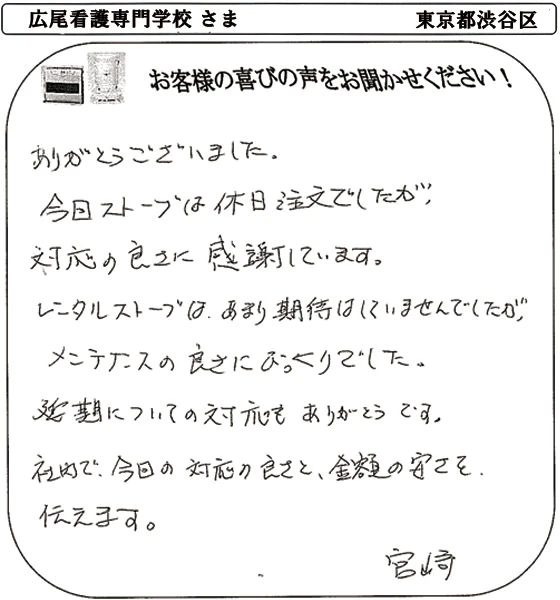 広尾看護専門学校 さま
東京都渋谷区
お客様の喜びの声をお聞かせください！
ありがとうございました。
今回ストーブは休日注文でしたが、
対応の良さに感謝しています。
レンタルストーブは、あまり期待はしていませんでしたが、
メンテナンスの良さにびっくりでした。
延期についての対応も ありがとうです。
社内で、今回の対応の良さと、金額の安さを、
伝えます。
宮崎